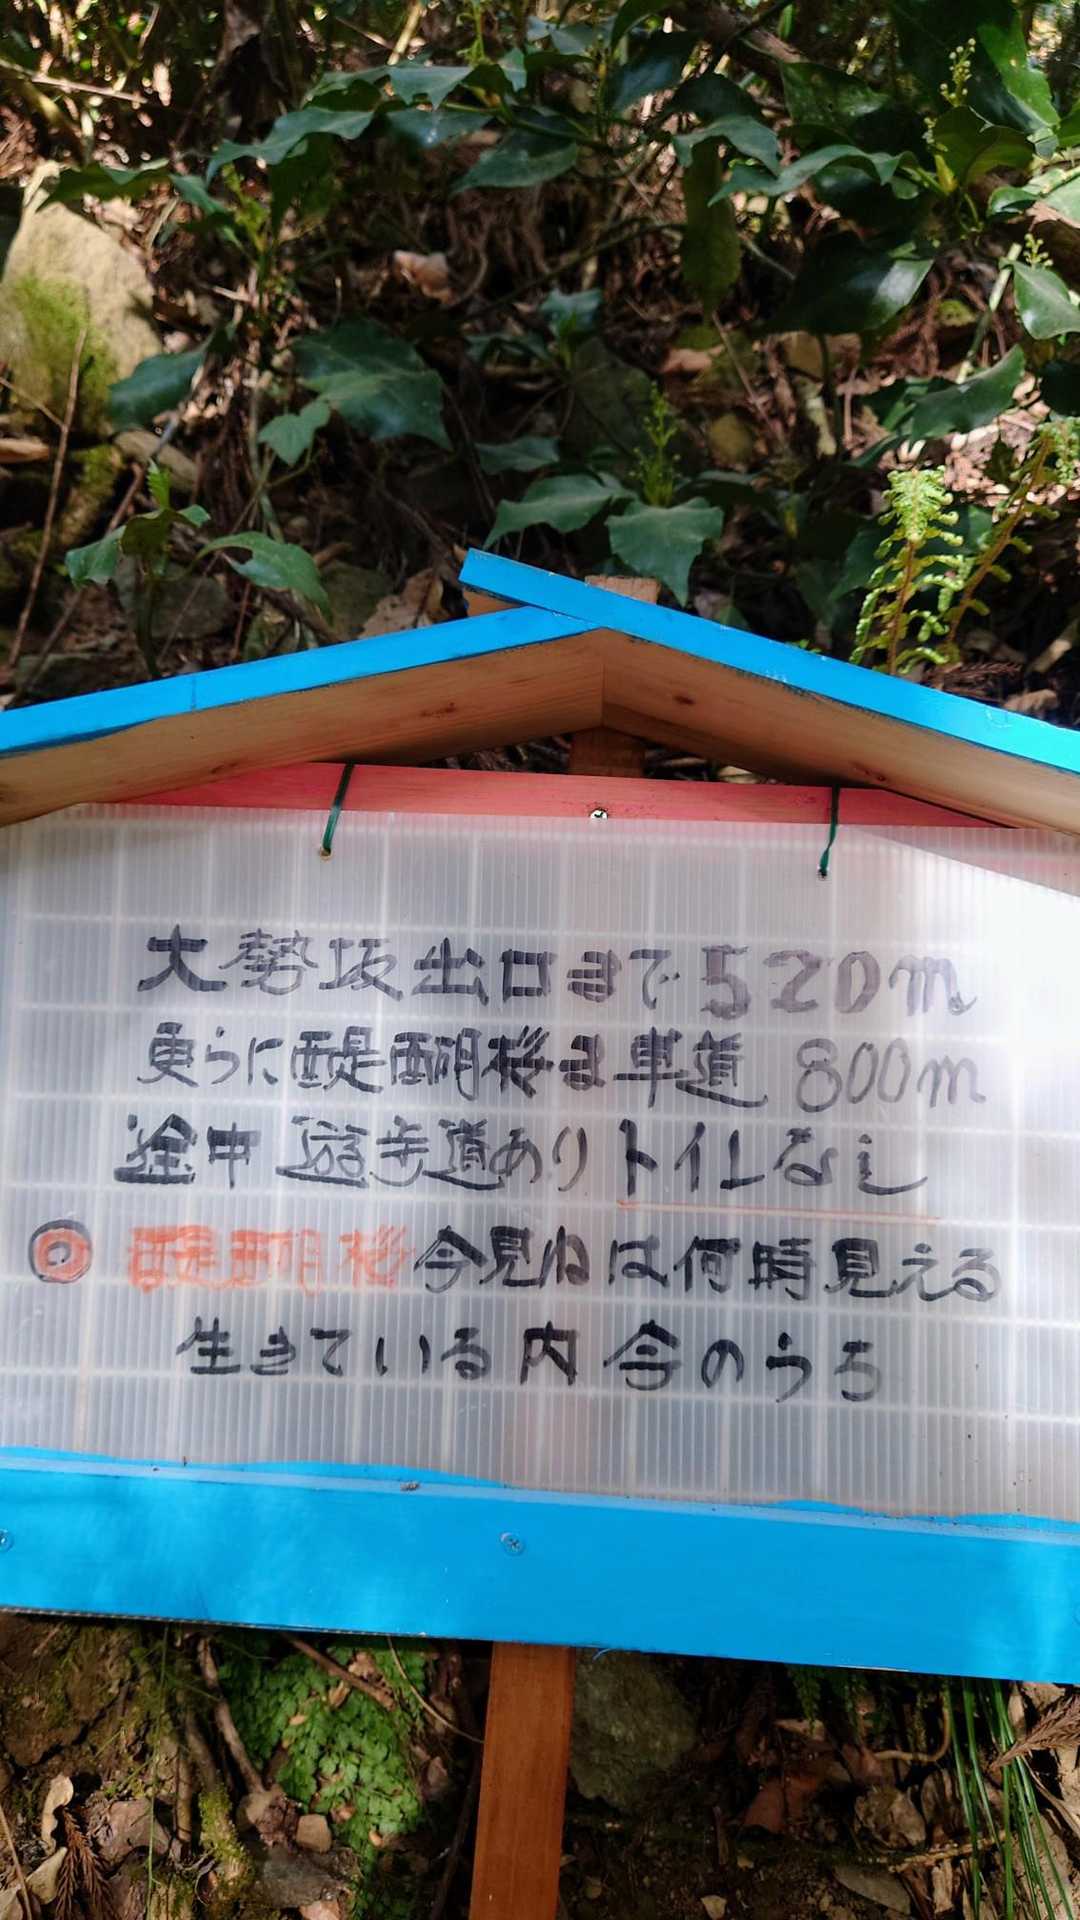 大勢坂出口まで520m
更らに醍醐桜ま車道 800m
途中 遊歩道あり トイレなし
◎ 醍醐桜 今見ねは何時見える
生きている内 今のうち